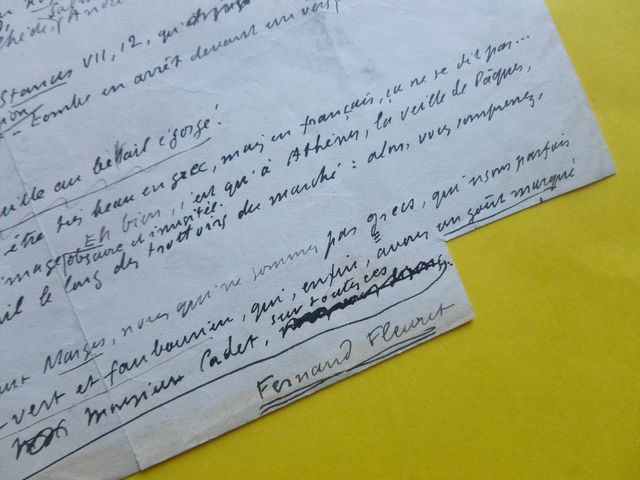 (André
Stances VII, 12, qui
Tombe en arrêt devant un vers
au bétail égorgé!
être très beau en grec, mais en français, ça ne se dit pas...
image obscure et inusitée. Eh bien, c'est qu'à Athènes, la veille de Pâques,
le long des trottoirs du marché : alors, vous comprenez,
Marges, nous qui ne sommes pas grecs, qui n'sons parfois
vert et faubourien, qui, enfin, avons un goût marqué
Monsieur Cadet, sur toutes ces
Fernand Fleuret